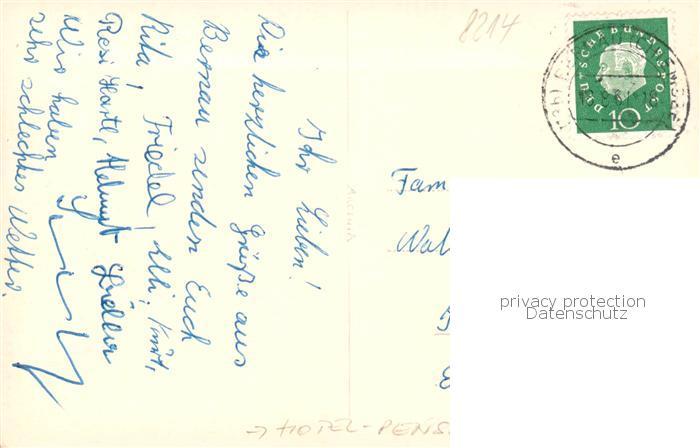 8214
DEUTSCHE BUNDESPOST
10
e
Ihr Lieben!
Die herzlichen Grüße aus
Bernau senden Euch
Rita!
Friedel, Elli, Kurt,
Resi Hartl, Helmut
Wir haben
sehr schlechtes Wetter.
Fam
Wal
privacy protection
Datenschutz
→ HOTEL-PENS